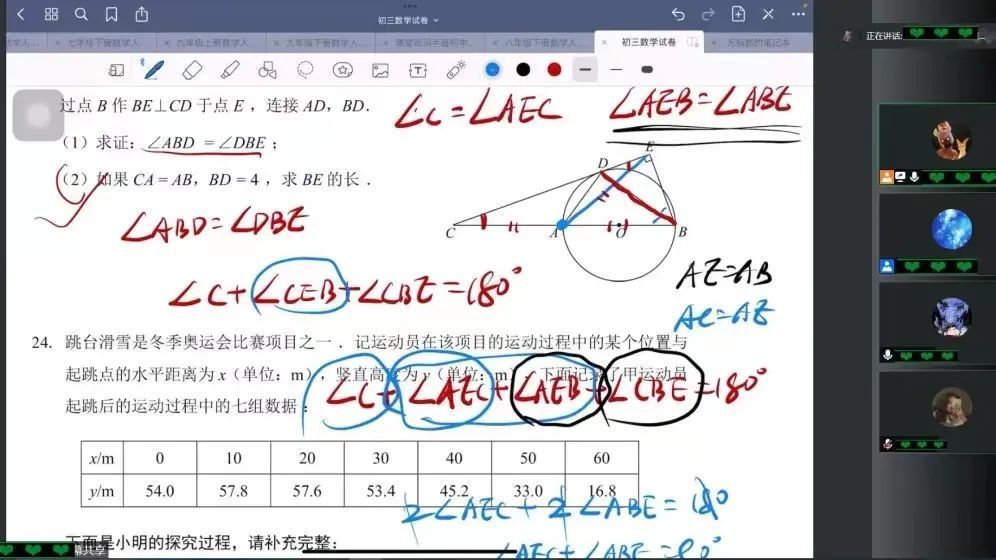 初三数学试卷
七年级下册数学人...
九年级上册数学人
九年级下册数学人...
八年级下册数学人...
× 初三数学试卷
正在讲话:
过点 B 作 BE⊥CD 于点 E，连接 AD，BD．
∠C=∠AEC
∠AEB=∠ABE
（1）求证：∠ABD =∠DBE；
（2）如果 CA = AB，BD = 4，求 BE 的长．
E
D
C
A
O
B
∠ABD=∠DBE
AE=AB
AC=AE
∠C+∠CEB+∠CBE=180°
24. 跳台滑雪是冬季奥运会比赛项目之一．记运动员在该项目的运动过程中的某个位置与
起跳点的水平距离为 x（单位：m），竖直高度为 y（单位：m），下面记录了甲运动员
起跳后的运动过程中的七组数据：
∠C+∠AEC+∠AEB+∠CBE=180°
x/m 0 10 20 30 40 50 60
y/m 54.0 57.8 57.6 53.4 45.2 33.0 16.8
2∠AEC+2∠ABE=180
∠AEC+∠ABE=90°
下面是小明的探究过程，请补充完整：